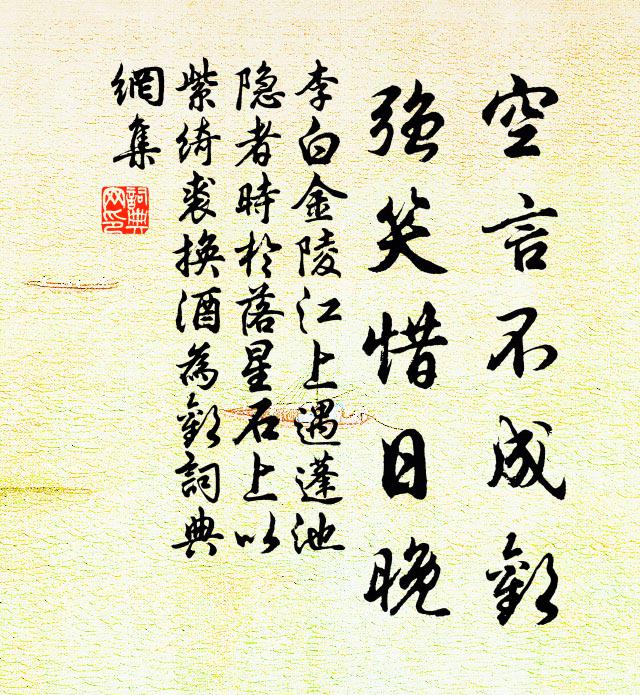 空言不成歡
強笑惜日晚
李白金陵江上遇蓬池
隐者時於落星石上以
紫綺裘换酒為歡詞典
網集
詞典
网印